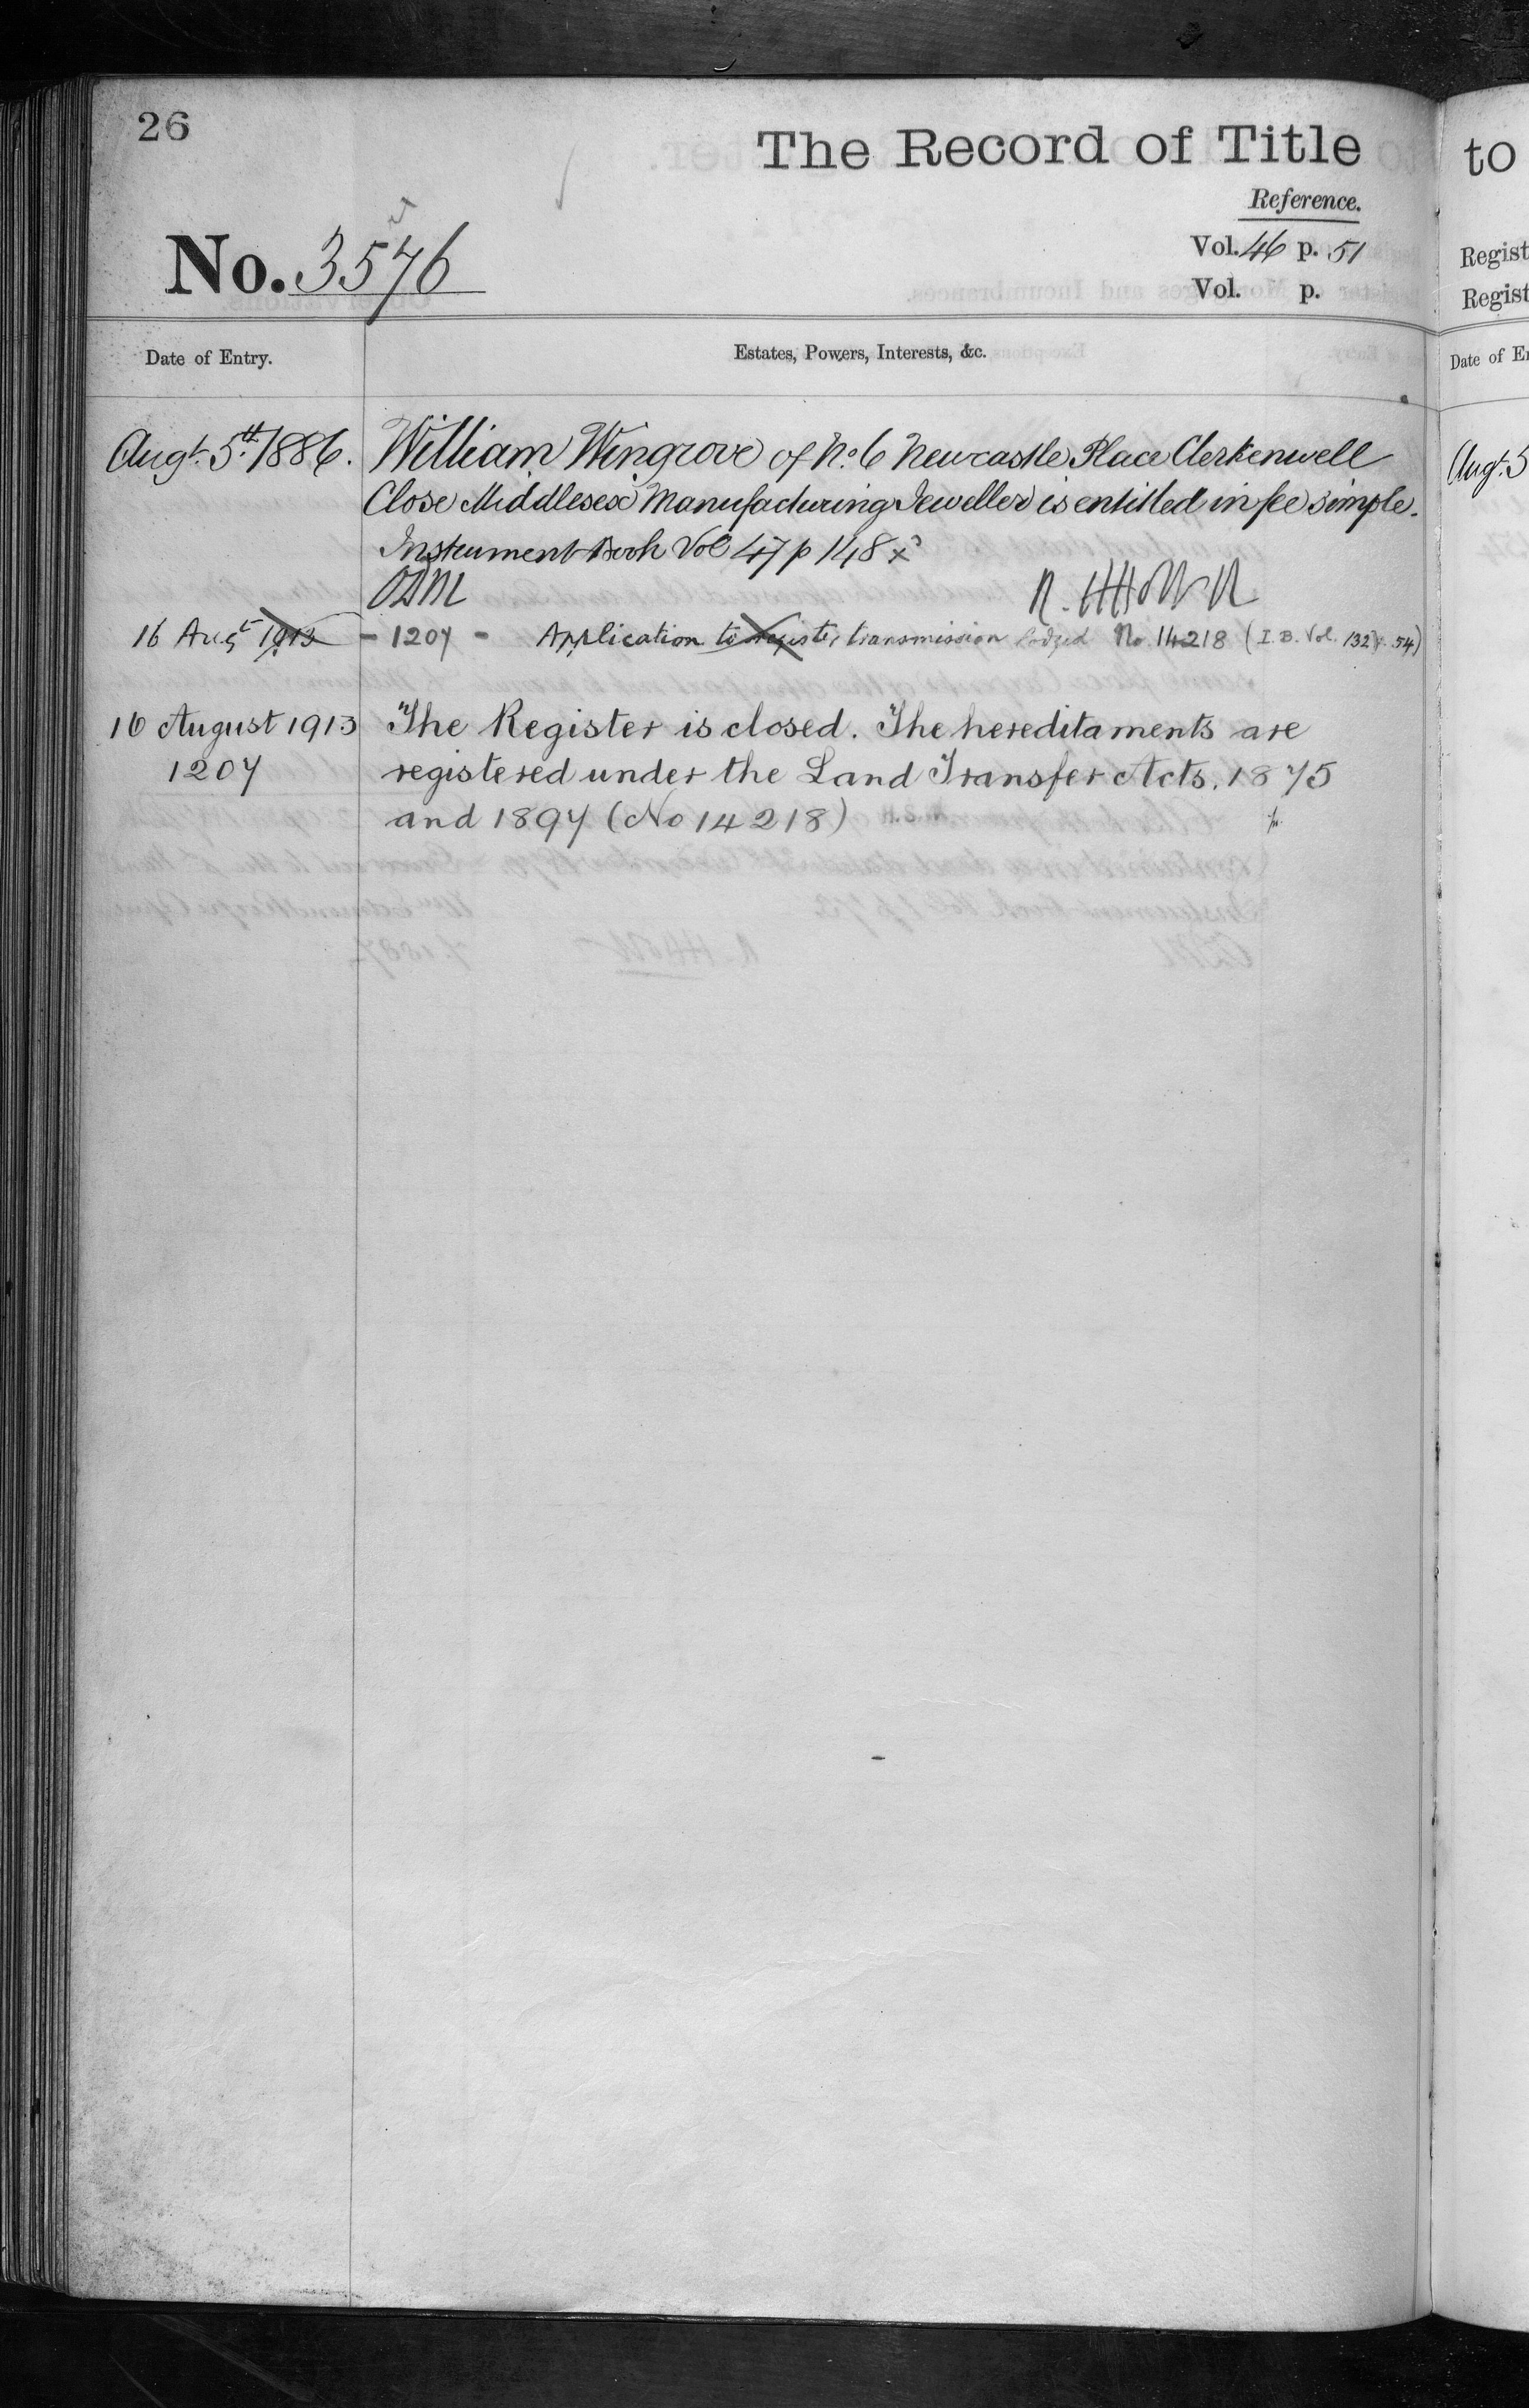 26
The Record of Title
Reference.
No. 3576
Vol. 46 p. 51
Vol. p.
Date of Entry.
Estates, Powers, Interests, &c.
Augt. 5th 1886.
William Wingrove of No. 6 Newcastle Place Clerkenwell
Close Middlesex Manufacturing Jeweller is entitled in fee simple.
Instrument Book Vol 47 p 148
16 Augt 1913 - 1207 - Application to register transmission lodged No 14218 (I.B. Vol. 132 p. 54)
16 August 1913
1207
The Register is closed. The hereditaments are
registered under the Land Transfer Acts, 1875
and 1897 (No 14218)
to
Regist
Regist
Date of E
Augt. 5